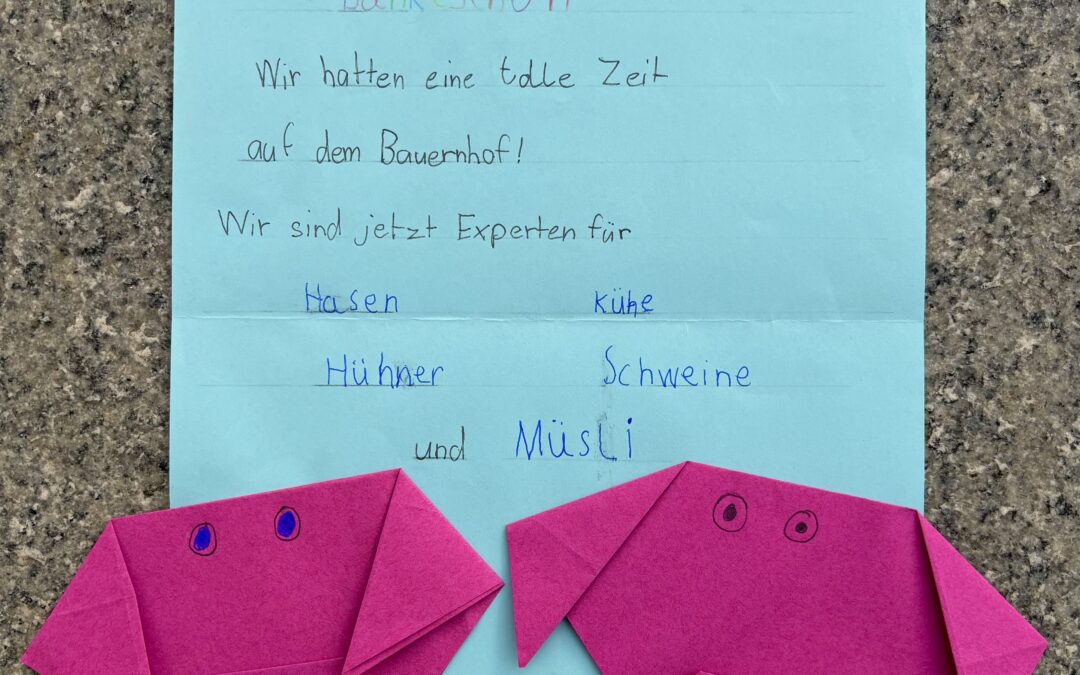 Dankeschön
Wir hatten eine tolle Zeit
auf dem Bauernhof!
Wir sind jetzt Experten für
Hasen Kühe
Hühner Schweine
und Müsli